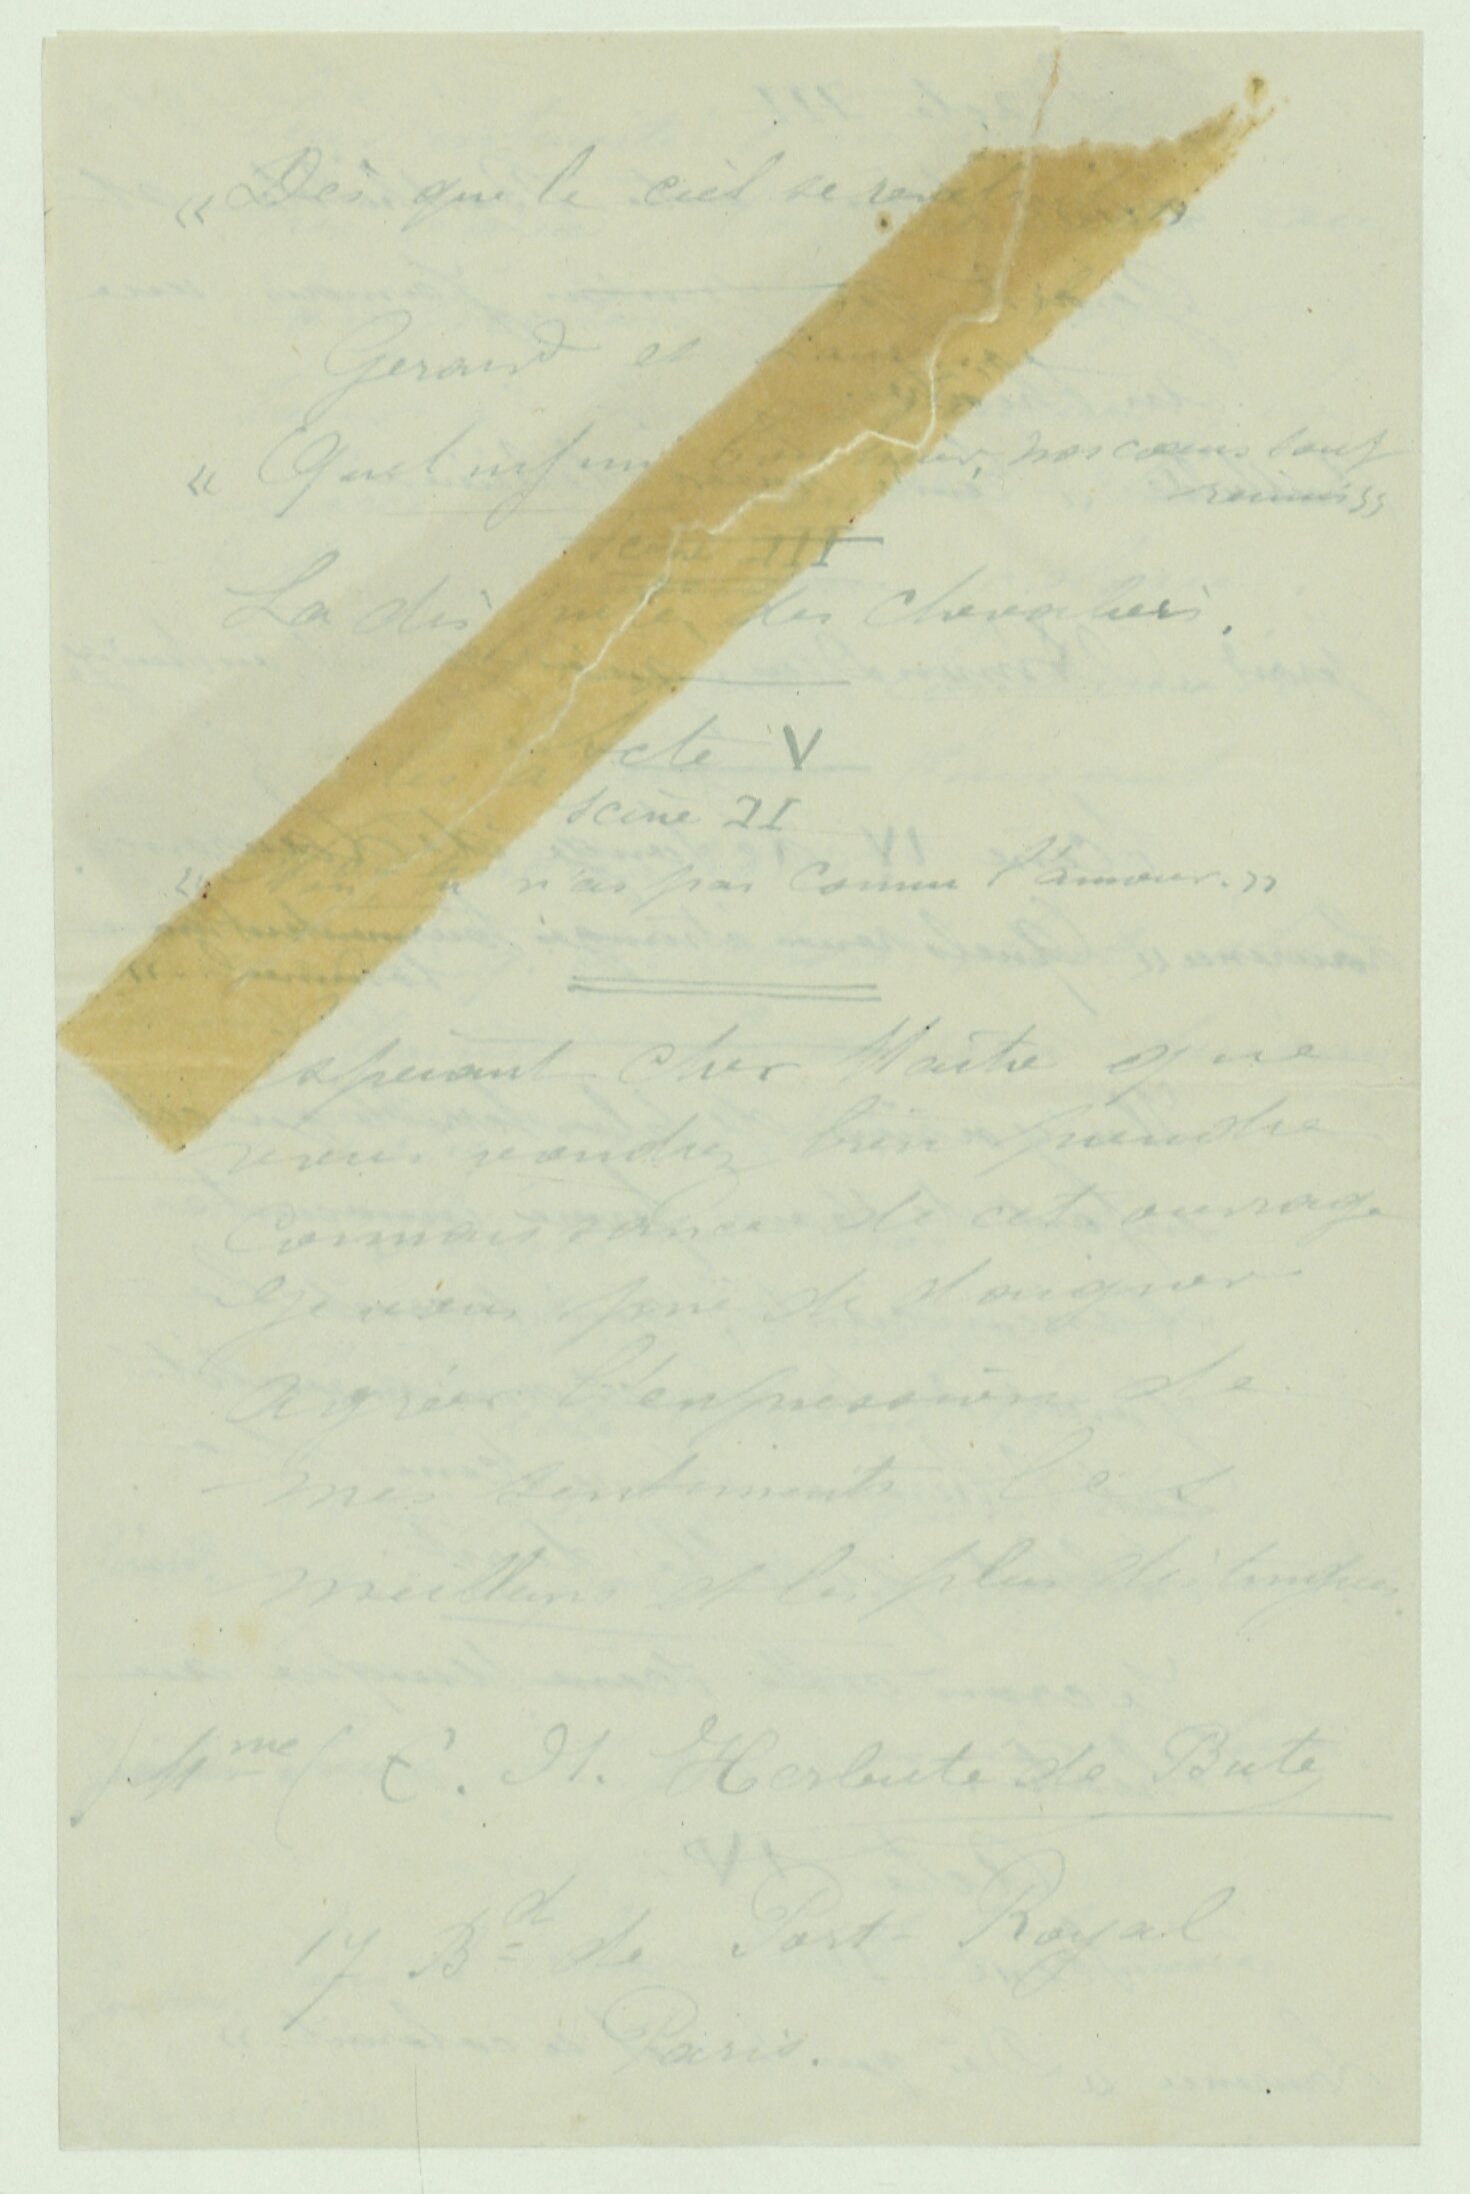 « Dès que le ciel se
Gerard et
« Quel infini bonheur, nos cœurs sont
reunis »
Scène III
La des chevaliers.
Acte V
Scène II
« tu n'as pas connu l'amour. »
Esperant cher Maître que
vous voudrez bien prendre
Connaissance de cet ouvrage
Je vous prie de daigner
agréer l'expression de
mes sentiments les
meilleurs et les plus distingués
Mme C. H. Herleute de Bute
17 Bd de Port-Royal
Paris.